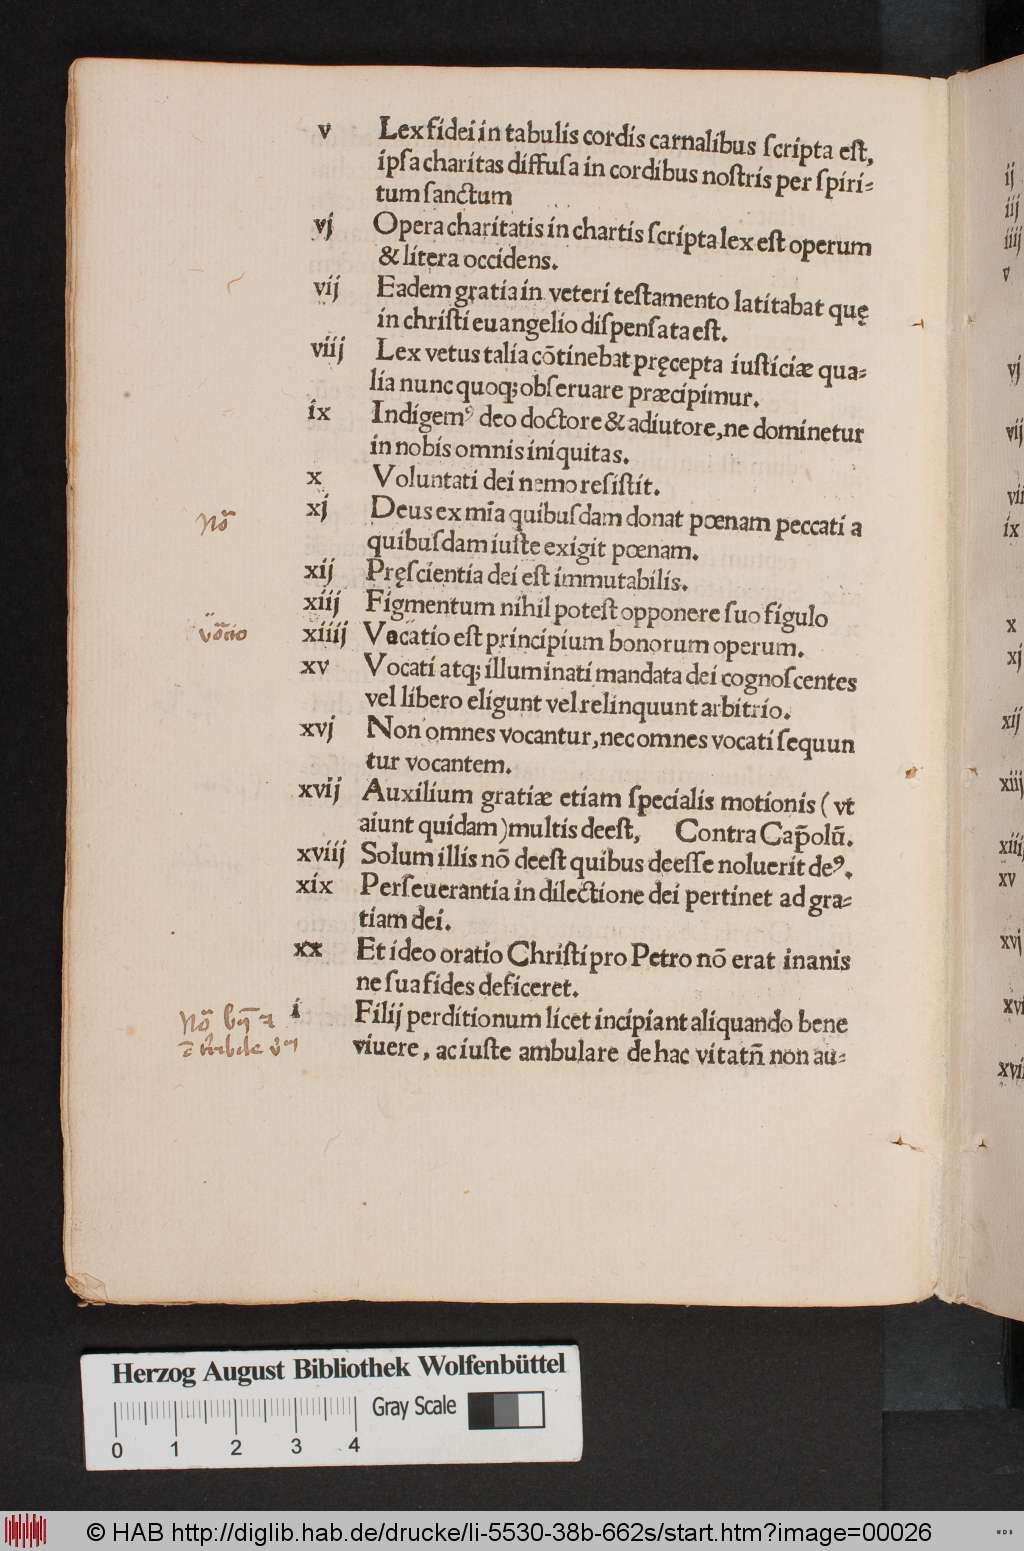 v Lex fidei in tabulis cordis carnalibus ſcripta eſt,
ipſa charitas diffuſa in cordibus noſtris per ſpiri⸗
tum ſanctum
vj Opera charitatis in chartis ſcripta lex eſt operum
& litera occidens.
vij Eadem gratia in veteri teſtamento latitabat quę
in chriſti euangelio diſpenſata eſt.
viij Lex vetus talia cōtinebat pręcepta iuſticiæ qua⸗
lia nunc quoq; obſeruare præcipimur.
ix Indigemꝰ deo doctore & adiutore, ne dominetur
in nobis omnis iniquitas.
x Voluntati dei nemo reſiſtit.
xj Deus ex mīa quibuſdam donat pœnam peccati a
quibuſdam iuſte exigit pœnam.
xij Pręſcientia dei eſt immutabilis.
xiij Figmentum nihil poteſt opponere ſuo figulo
xiiij Vocatio eſt principium bonorum operum.
xv Vocati atq; illuminati mandata dei cognoſcentes
vel libero eligunt vel relinquunt arbitrio.
xvj Non omnes vocantur, nec omnes vocati ſequun
tur vocantem.
xvij Auxilium gratiæ etiam ſpecialis motionis ( vt
aiunt quidam ) multis deeſt, Contra Cap̄olū.
xviij Solum illis nō deeſt quibus deeſſe noluerit deꝰ.
xix Perſeuerantia in dilectione dei pertinet ad gra⸗
tiam dei.
xx Et ideo oratio Chriſti pro Petro nō erat inanis
ne ſua fides deficeret.
i Filij perditionum licet incipiant aliquando bene
viuere, ac iuſte ambulare de hac vita tñ non au⸗
Nō
vōtio
Nō
ij
iij
iiij
v
vj
vij
viij
ix
x
xj
xij
xiij
xiiij
xv
xvj
Herzog August Bibliothek Wolfenbüttel
Gray Scale
0 1 2 3 4
© HAB http://diglib.hab.de/drucke/li-5530-38b-662s/start.htm?image=00026